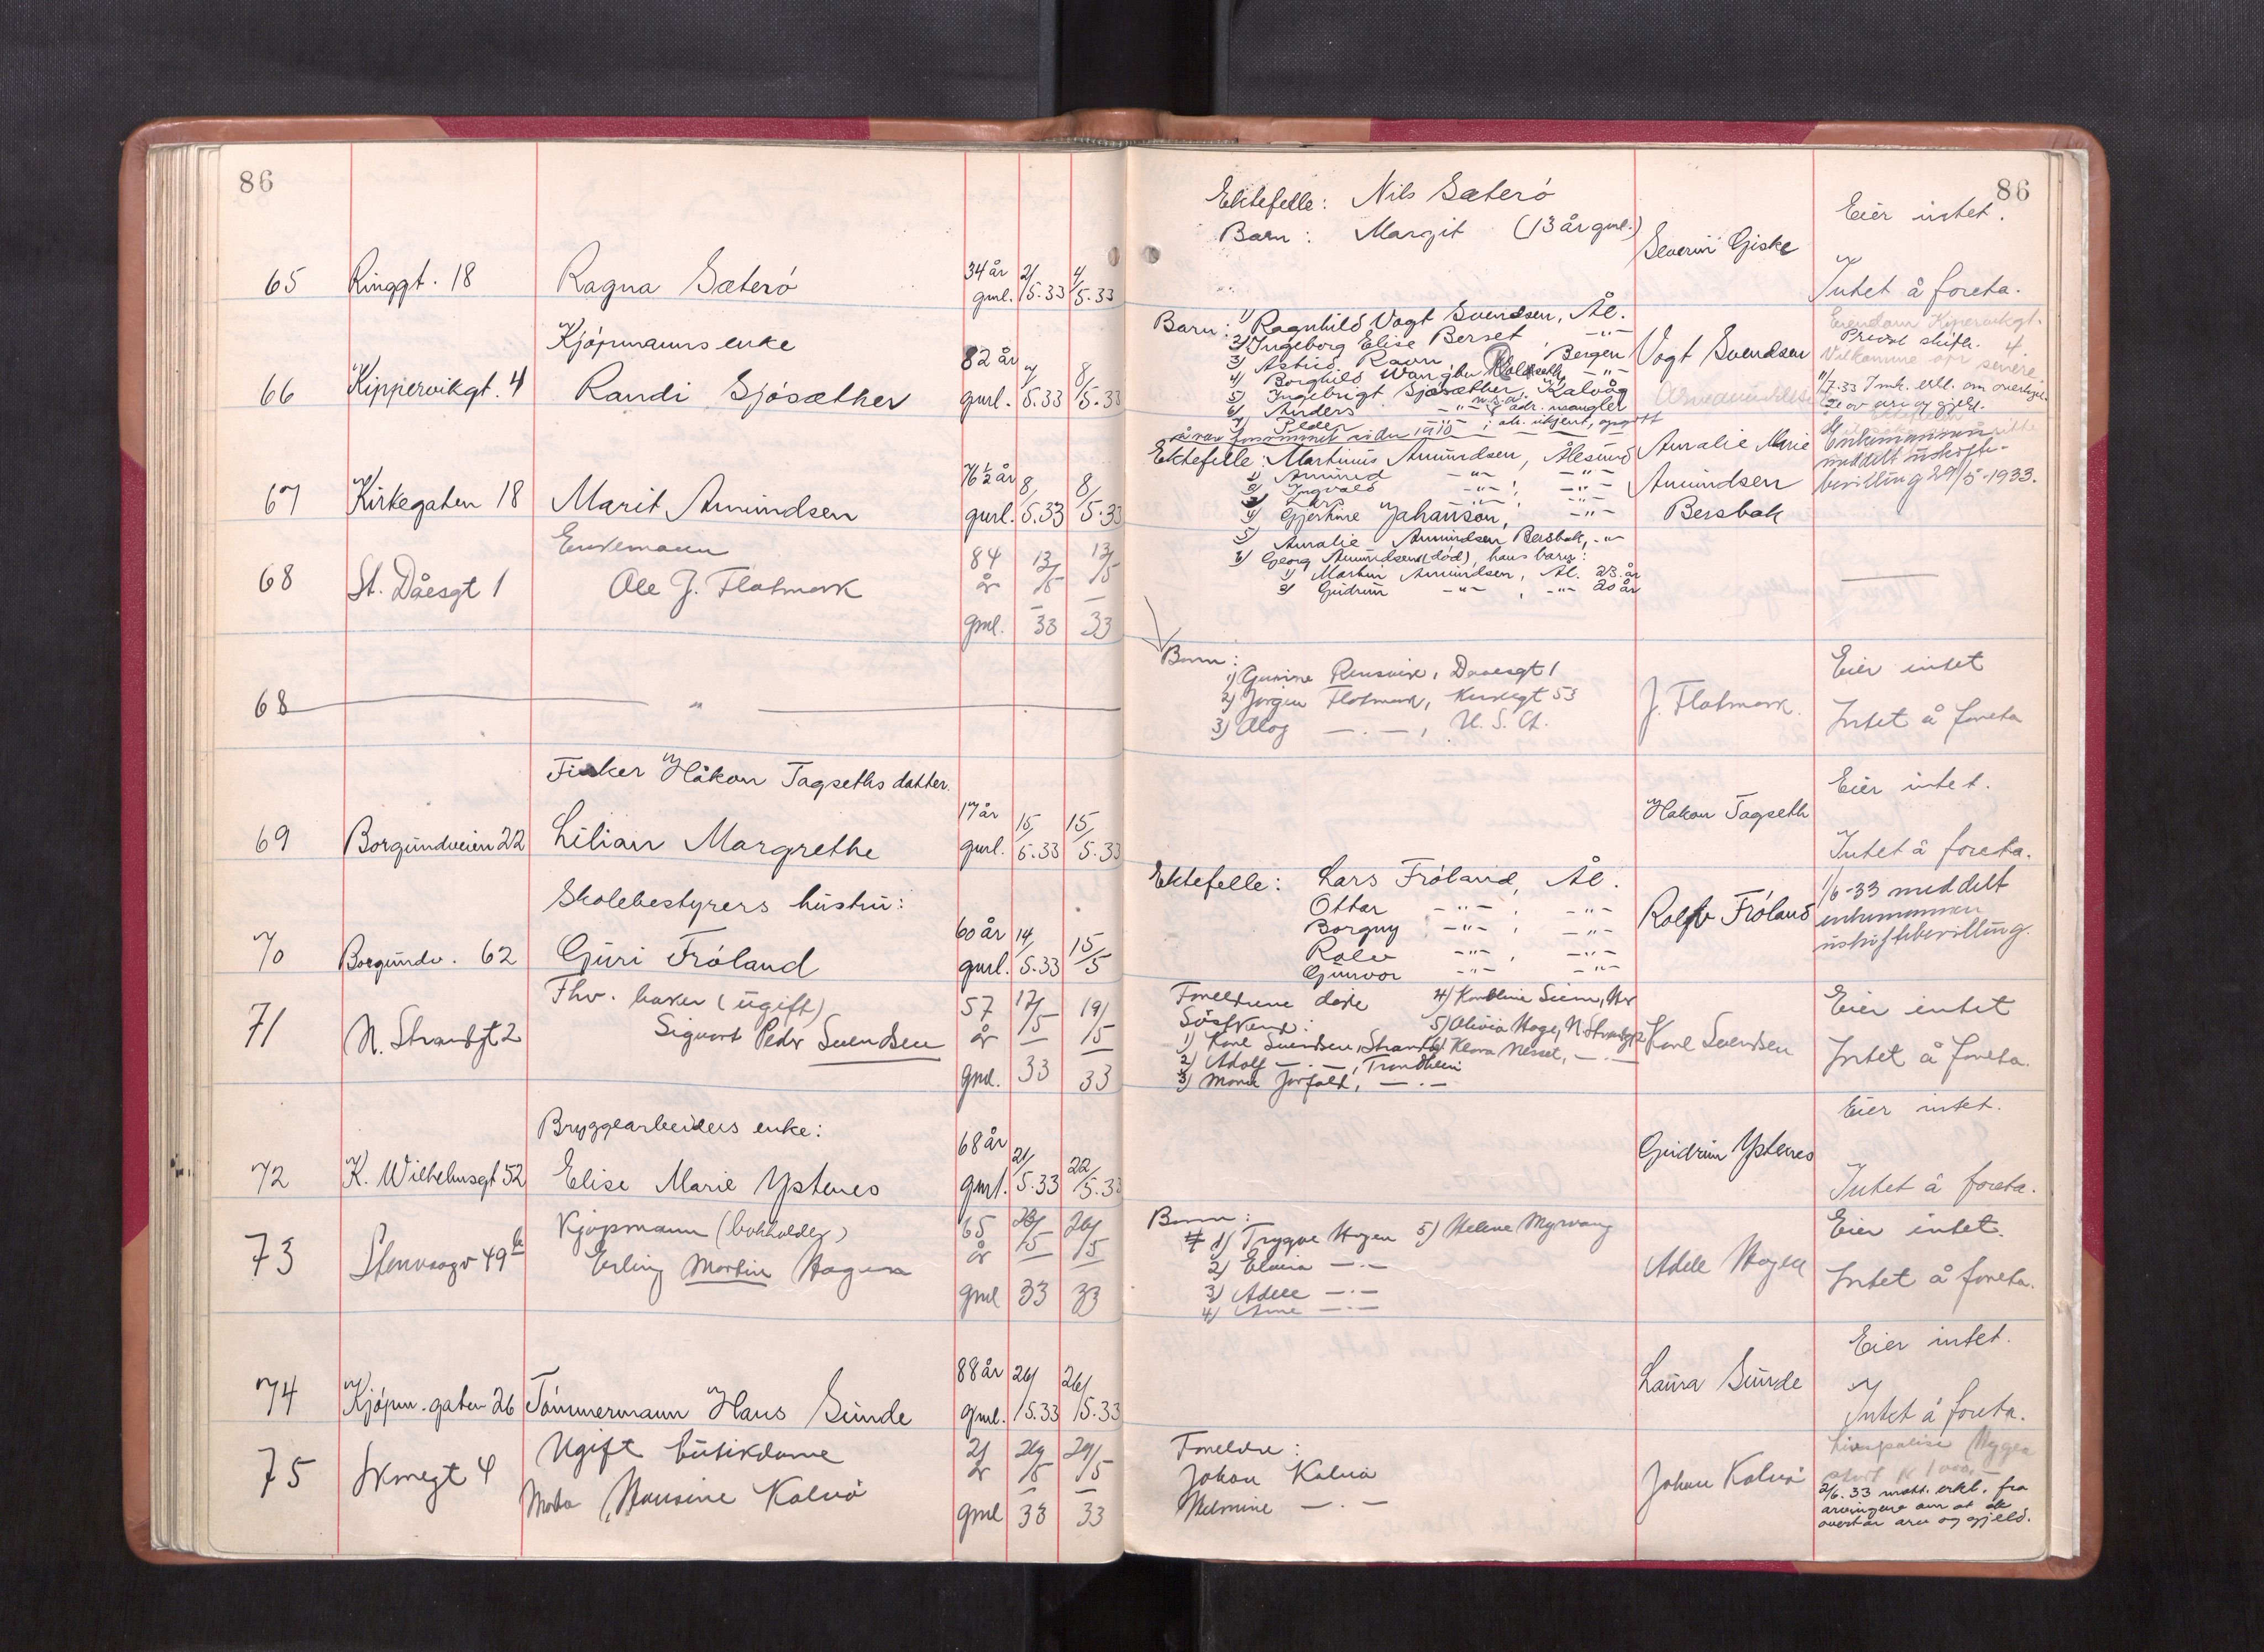 86
86
Ektefelle: Nils Sæterö
Barn: Margit (13 år gml.)
Severin Giske
Eier intet.
65 Ringgt. 18 Ragna Sæterö 34 år gml. 2/5.33 4/5.33
Intet å foreta.
Kjöpmanns enke
66 Kippervikgt. 4 Randi Sjösæther 82 år gml. 7/5.33 8/5.33
Barn: 1) Ragnhild Vogt Svendsen, Ål.
2) Ingeborg Elise Berset, -"-
3) Astrid Ravn, Bergen
4) Borghild -"-
5) Ingebrigt Sjösæther, Kalvåg
6) Anders -"- U.S.A. adr. mangler
7) Peder -"- adr. ukjent, opgitt
å være forsvunnet siden 1915
Vogt Svendsen
Eiendom Kipervikgt. 4
Privat skifte.
Vilkomme opr senere
11/7.33 Innk. erkl. om overtagelse av arv og gjeld.
67 Kirkegaten 18 Marit Amundsen 76½ år gml. 8/5.33 8/5.33
Ektefelle: Martinus Amundsen, Ålesund
1) Amund -"- , -"-
2) Ingvald -"- , -"-
3) Lars -"- , -"-
4) Gjertine Johanson, -"-
5) Amalie Amundsen Bersbak, -"-
6) Georg Amundsen (död), hans barn:
1) Martin Amundsen, Ål. 23 år
2) Gudrun -"- , -"- 20 år
Amalie Marie
Amundsen
Bersbak
Enkemannen
meddelt uskifte-
bevilling 29/5-1933.
Enkemann
68 St. Dåesgt 1 Ole J. Flotmark 84 år gml. 13/5-33 13/5-33
68 "
Barn:
1) Gunine Rensvik, Daaesgt 1
2) Jörgen Flotmark, 53
3) Alog -.-, U.S.A.
J. Flotmark.
Eier intet
Intet å foreta
Fisker Håkon Tagseths datter.
69 Borgundveien 22 Lilian Margrethe 17 år gml. 15/5.33 15/5.33
Hakon Tagseth
Eier intet.
Intet å foreta.
Skolebestyrers hustru:
70 Borgundv. 62 Guri Fröland 60 år gml. 14/5.33 15/5
Ektefelle: Lars Fröland, Ål.
Ottar -"- , -"-
Borgny -"- , -"-
Rolv -"- , -"-
Gunvor -"- -"-
Rolv Fröland
1/6-33 meddelt
enkemannen
uskiftebevilling.
Fhv. baker (ugift)
71 N. Strandgt 2 Sigvart Peder Svendsen 57 år gml. 17/5-33 19/5-33
Foreldrene döde
Söskend:
1) Karl Svendsen, Strandg
2) Adolf -.-, Trondheim
3) -.-
4) Karoline Siem, Her
5) Olivia Hage, N. Strandgt 2
6) Klara Nesset, -.-
Karl Svendsen
Eier intet
Intet å foreta.
Bryggearbeiders enke:
72 K. Wilhelmsgt 52 Elise Marie Ystenes 68 år gml. 21/5.33 22/5.33
Gudrun Ystenes
Eier intet.
Intet å foreta.
Kjöpmann (bokholder)
73 Stenvaagv 49b Erling Martin Hagen 65 år gml 26/5 33 26/5 33
Barn:
1) Trygve Hagen 5) Helene Myrvang
2) -.-
3) Adele -.-
4) Arne -.-
Adele Hagen
Eier intet.
Intet å foreta.
74 Kjöpm.gaten 26 Tömmermann Hans Sunde 88 år gml. 26/5.33 26/5.33
Laura Sunde
Eier intet.
Intet å foreta.
Ugift butikdame
75 4 Hansine Kalvö 21 år gml 29/5-33 29/5-33
Foreldre:
Johan Kalvö
Helmine -.-
Johan Kalvö
Livspolise Hygea
2/6.33 mott. erkl. fra
arvingene om at de
overtar arv og gjeld.